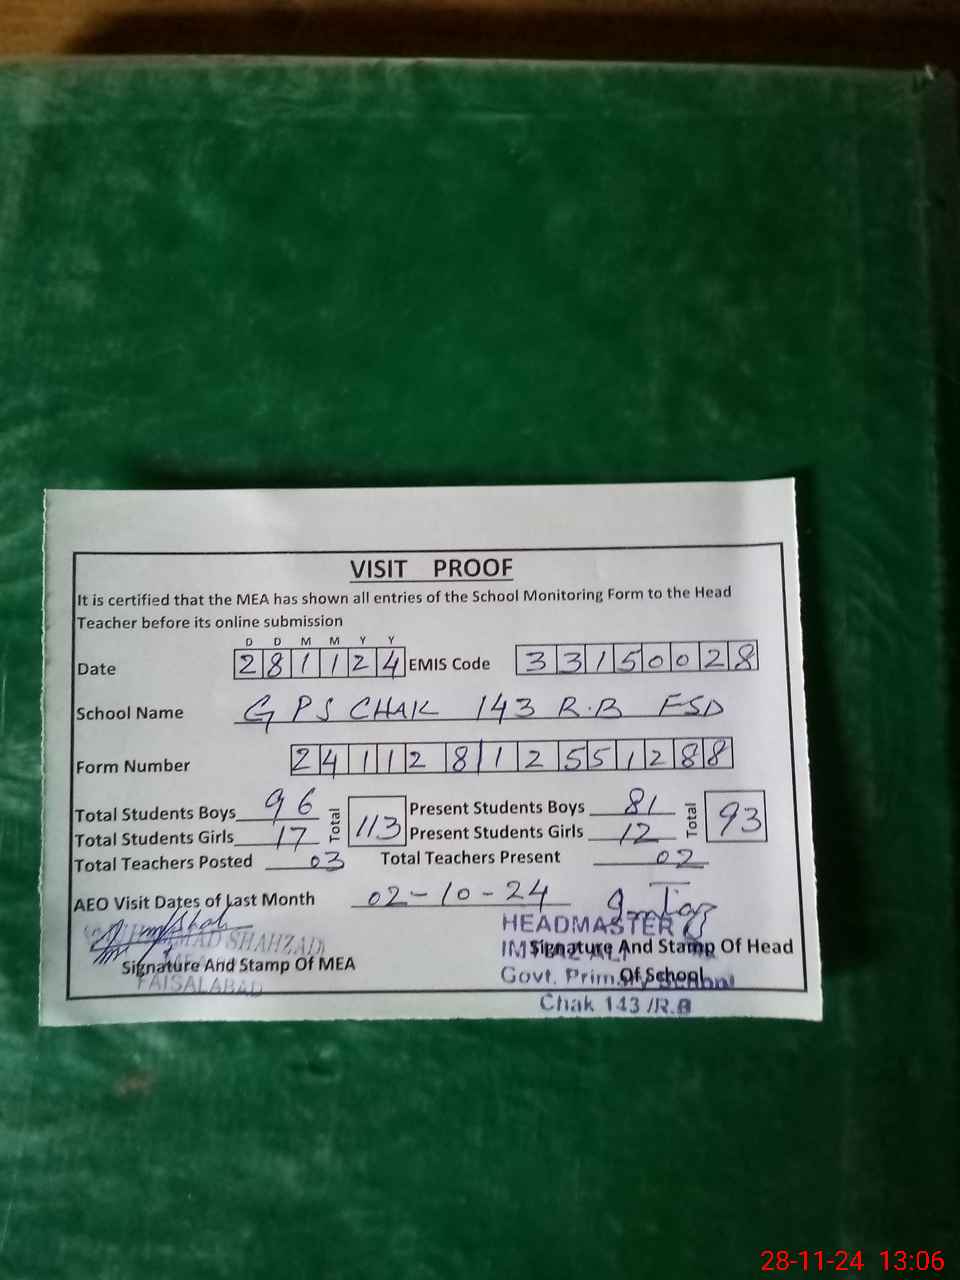 VISIT PROOF
It is certified that the MEA has shown all entries of the School Monitoring Form to the Head
Teacher before its online submission
D D M M Y Y
Date 281124 EMIS Code 33150028
School Name G P S CHAK 143 R.B FSD
Form Number 24112812551288
Total Students Boys 96 Total 113 Present Students Boys 81 Total 93
Total Students Girls 17 Present Students Girls 12
Total Teachers Posted 03 Total Teachers Present 02
AEO Visit Dates of Last Month 02-10-24
HEADMASTER
SHAHZAD
Signature And Stamp Of MEA
Signature And Stamp Of Head
Of School
FAISALABAD
Govt. School
Chak 143 /R.B
28-11-24 13:06